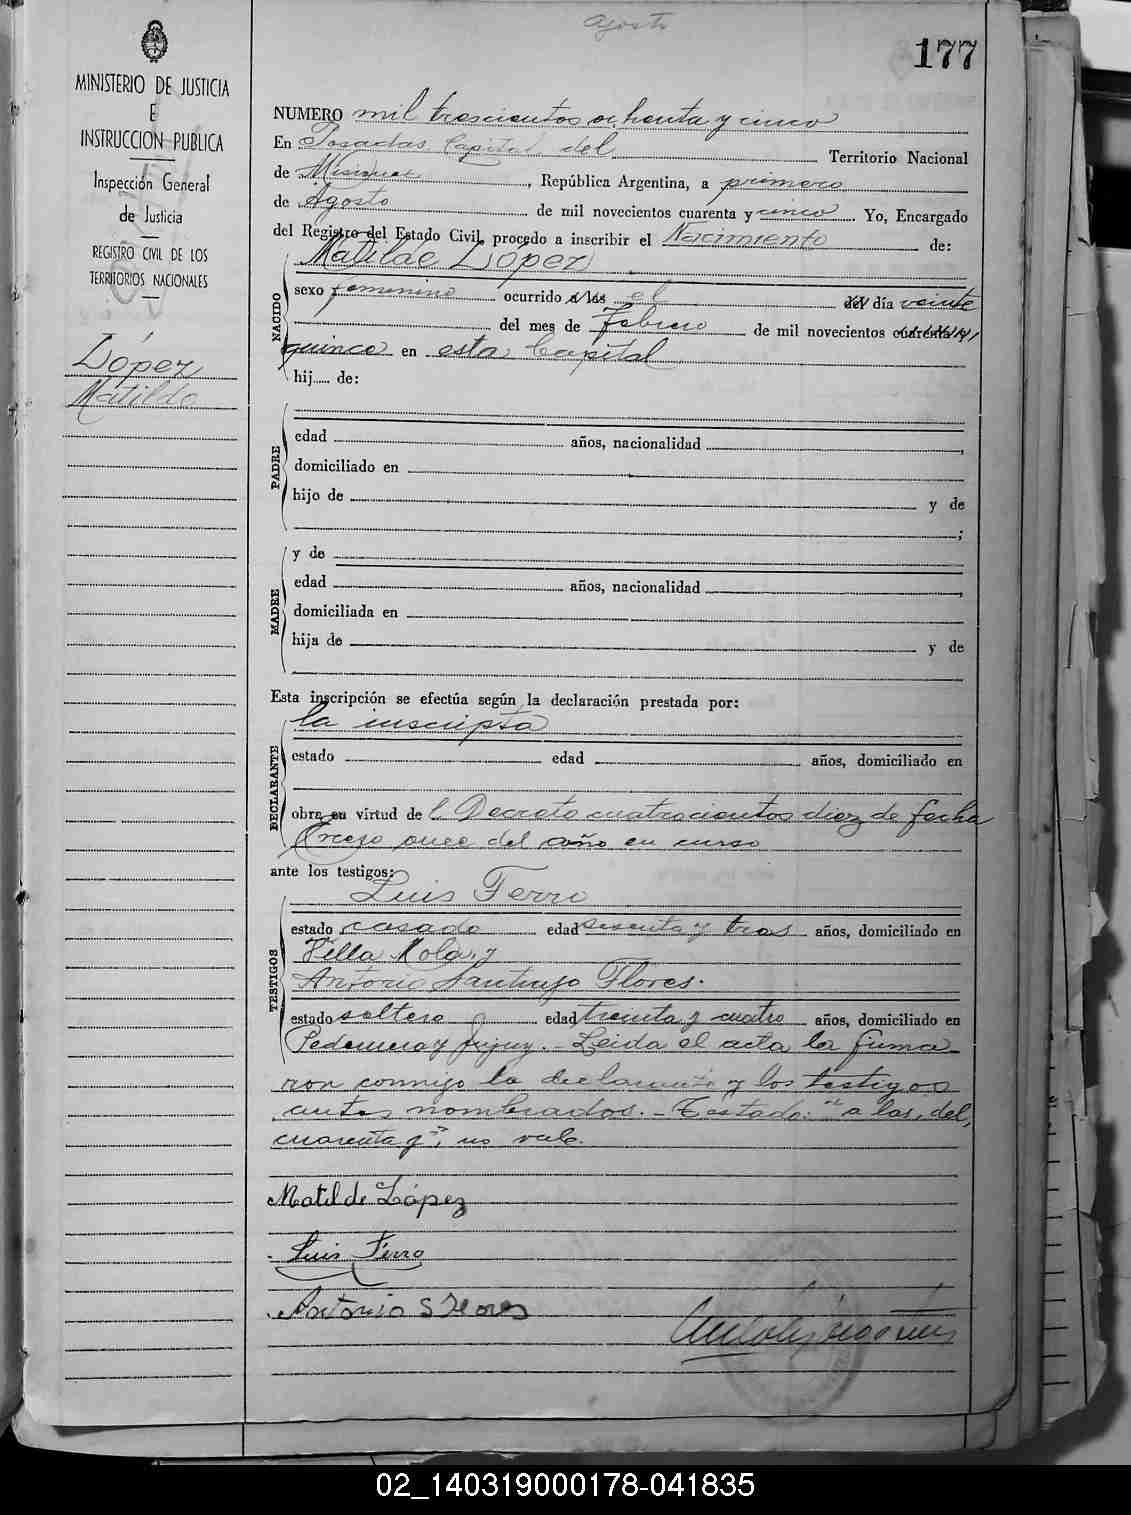 Agosto
177
MINISTERIO DE JUSTICIA
E
INSTRUCCION PUBLICA
Inspección General
de Justicia
REGISTRO CIVIL DE LOS
TERRITORIOS NACIONALES
López
Matilde
NUMERO mil trescientos ochenta y cinco
En Posadas Capital del Territorio Nacional
de Misiones, República Argentina, a primero
de Agosto de mil novecientos cuarenta y cinco. Yo, Encargado
del Registro del Estado Civil, procedo a inscribir el Nacimiento de:
NACIDO
Matilde López
sexo femenino ocurrido a las el del día veinte
del mes de Febrero de mil novecientos cuarenta y
quince en esta Capital
hij de:
PADRE
edad años, nacionalidad
domiciliado en
hijo de y de
;
MADRE
y de
edad años, nacionalidad
domiciliada en
hija de y de
Esta inscripción se efectúa según la declaración prestada por:
DECLARANTE
la inscripta
estado edad años, domiciliado en
obra en virtud de l Decreto cuatrocientos diez de fecha
Enero once del año en curso
ante los testigos:
TESTIGOS
Luis Ferro
estado casado edad sesenta y tres años, domiciliado en
Villa Mola, y
Antonio Santiago Flores.
estado soltero edad treinta y cuatro años, domiciliado en
Pedernera y Jujuy. - Leida el acta la firma
ron conmigo la declarante y los testigos
antes nombrados. - Testado: "a las, del,
cuarenta y", no vale.
Matilde López
Luis Ferro
Antonio S Flores
02_140319000178-041835